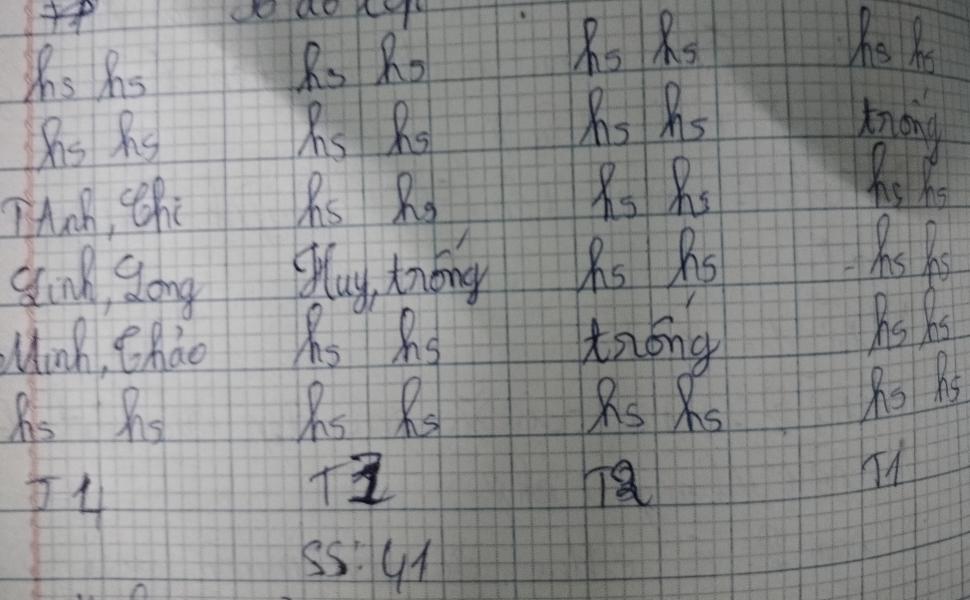 Sơ đồ lớp
hs hs hs hs hs hs hs hs
hs hs hs hs hs hs trống
TAnh, Chi hs hs hs hs hs hs
Linh, Long Huy, trống hs hs hs hs
Minh, Thảo hs hs trống hs hs
hs hs hs hs hs hs hs hs
T4 T3 T2 T1
SS: 41